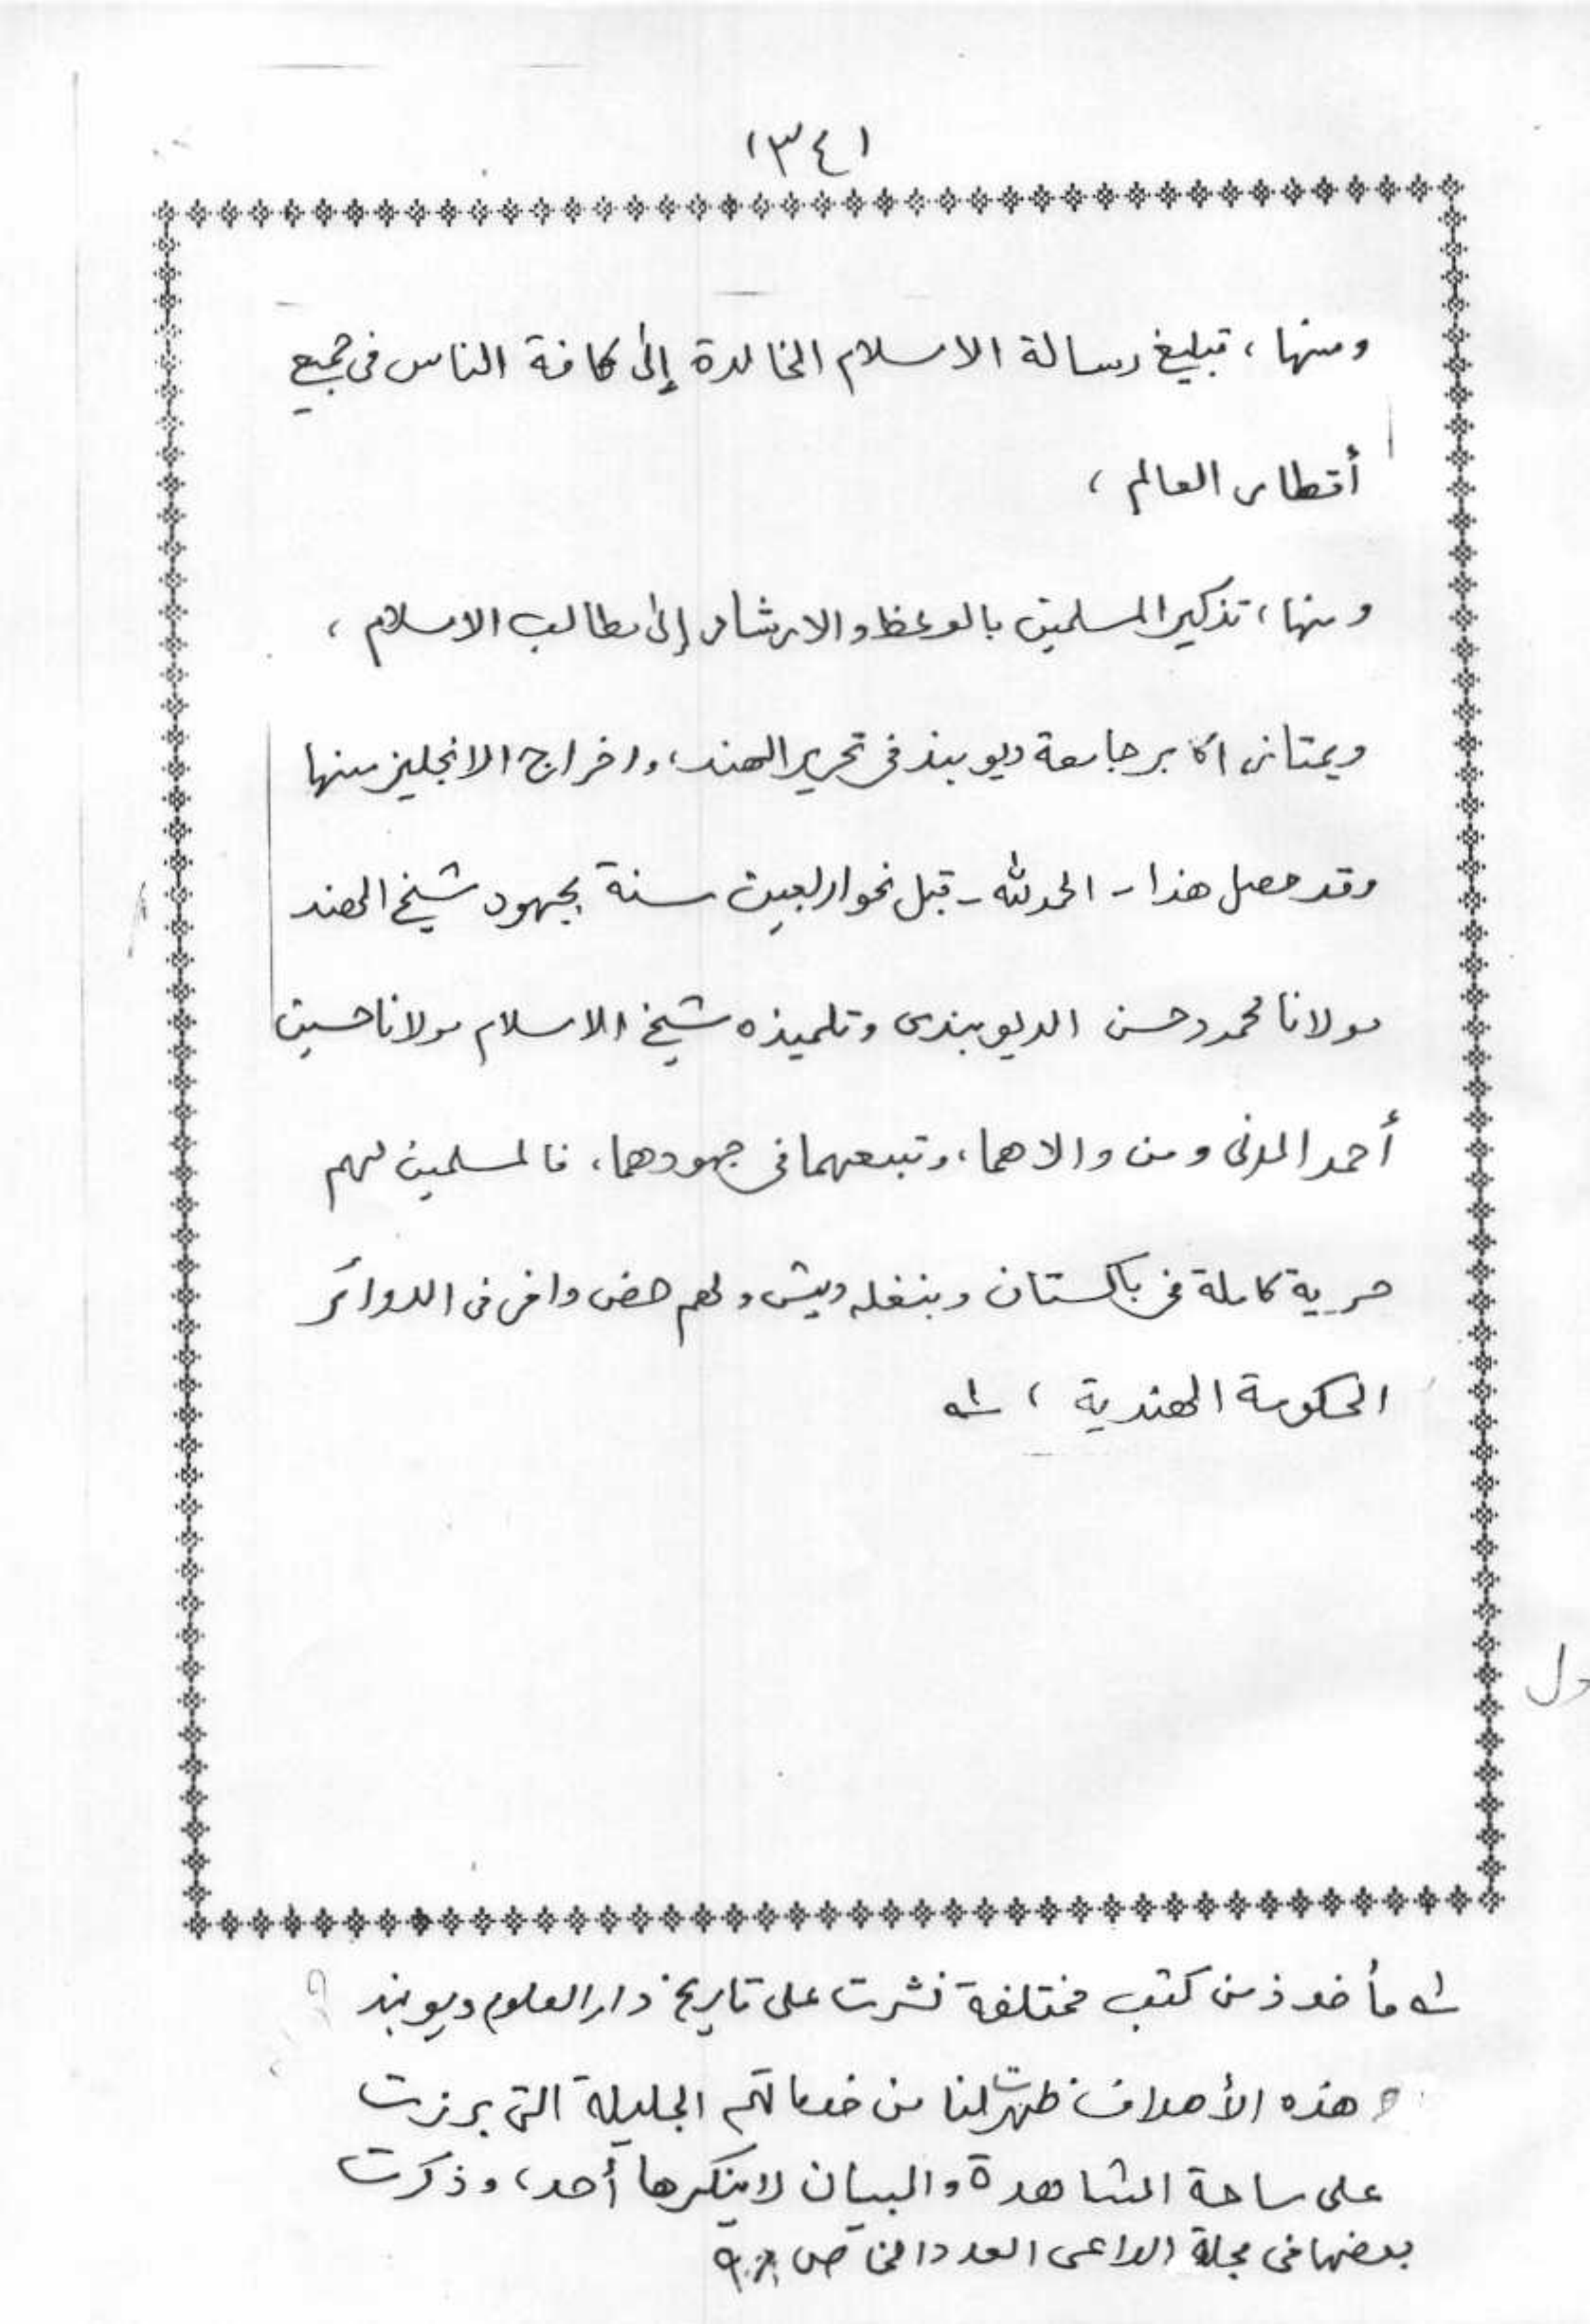 (٣٤)
ومنها، تبليغ رسالة الاسلام الخالدة إلى كافة الناس فى جميع
أقطار العالم ،
ومنها، تذكير المسلمين بالوعظ والارشاد إلى مطالب الاسلام ،
ويمتاز اكابر جامعة ديوبند فى تحرير الهند، واخراج الانجليز منها
وقد حصل هذا - الحمد لله - قبل نحو اربعين سنة بجهود شيخ الهند
مولانا محمود حسن الديوبندى وتلميذه شيخ الاسلام مولانا حسين
أحمد المدنى ومن والاهما، وتبعهما فى جهودهما، فالمسلمين لهم
حرية كاملة فى باكستان وبنغله ديش ولهم حض وافر فى الدوائر
الحكومة الهندية ، له
له مأخوذ من كتب مختلفة نشرت على تاريخ دار العلوم ديوبند
و هذه الأهداف ظهرت لنا من خدماتهم الجليلة التى برزت
على ساحة المشاهدة والبيان لا ينكرها أحد، وذكرت
بعضها فى مجلة الداعى العدد الخاص
ول